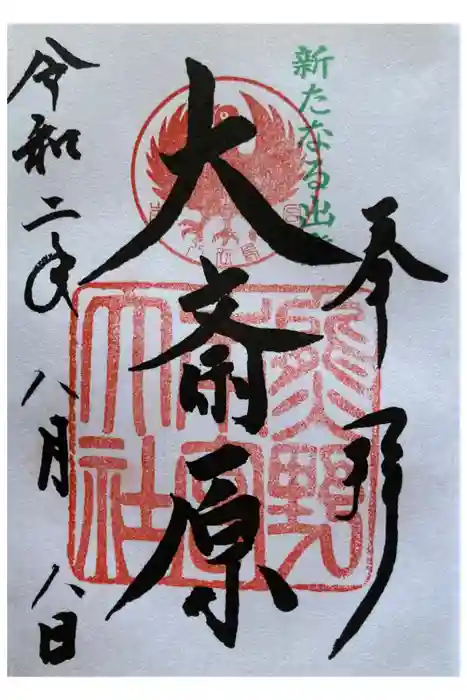 新たなる出
奉拝
大斎原
熊野
本宮
大社
令和二年八月八日